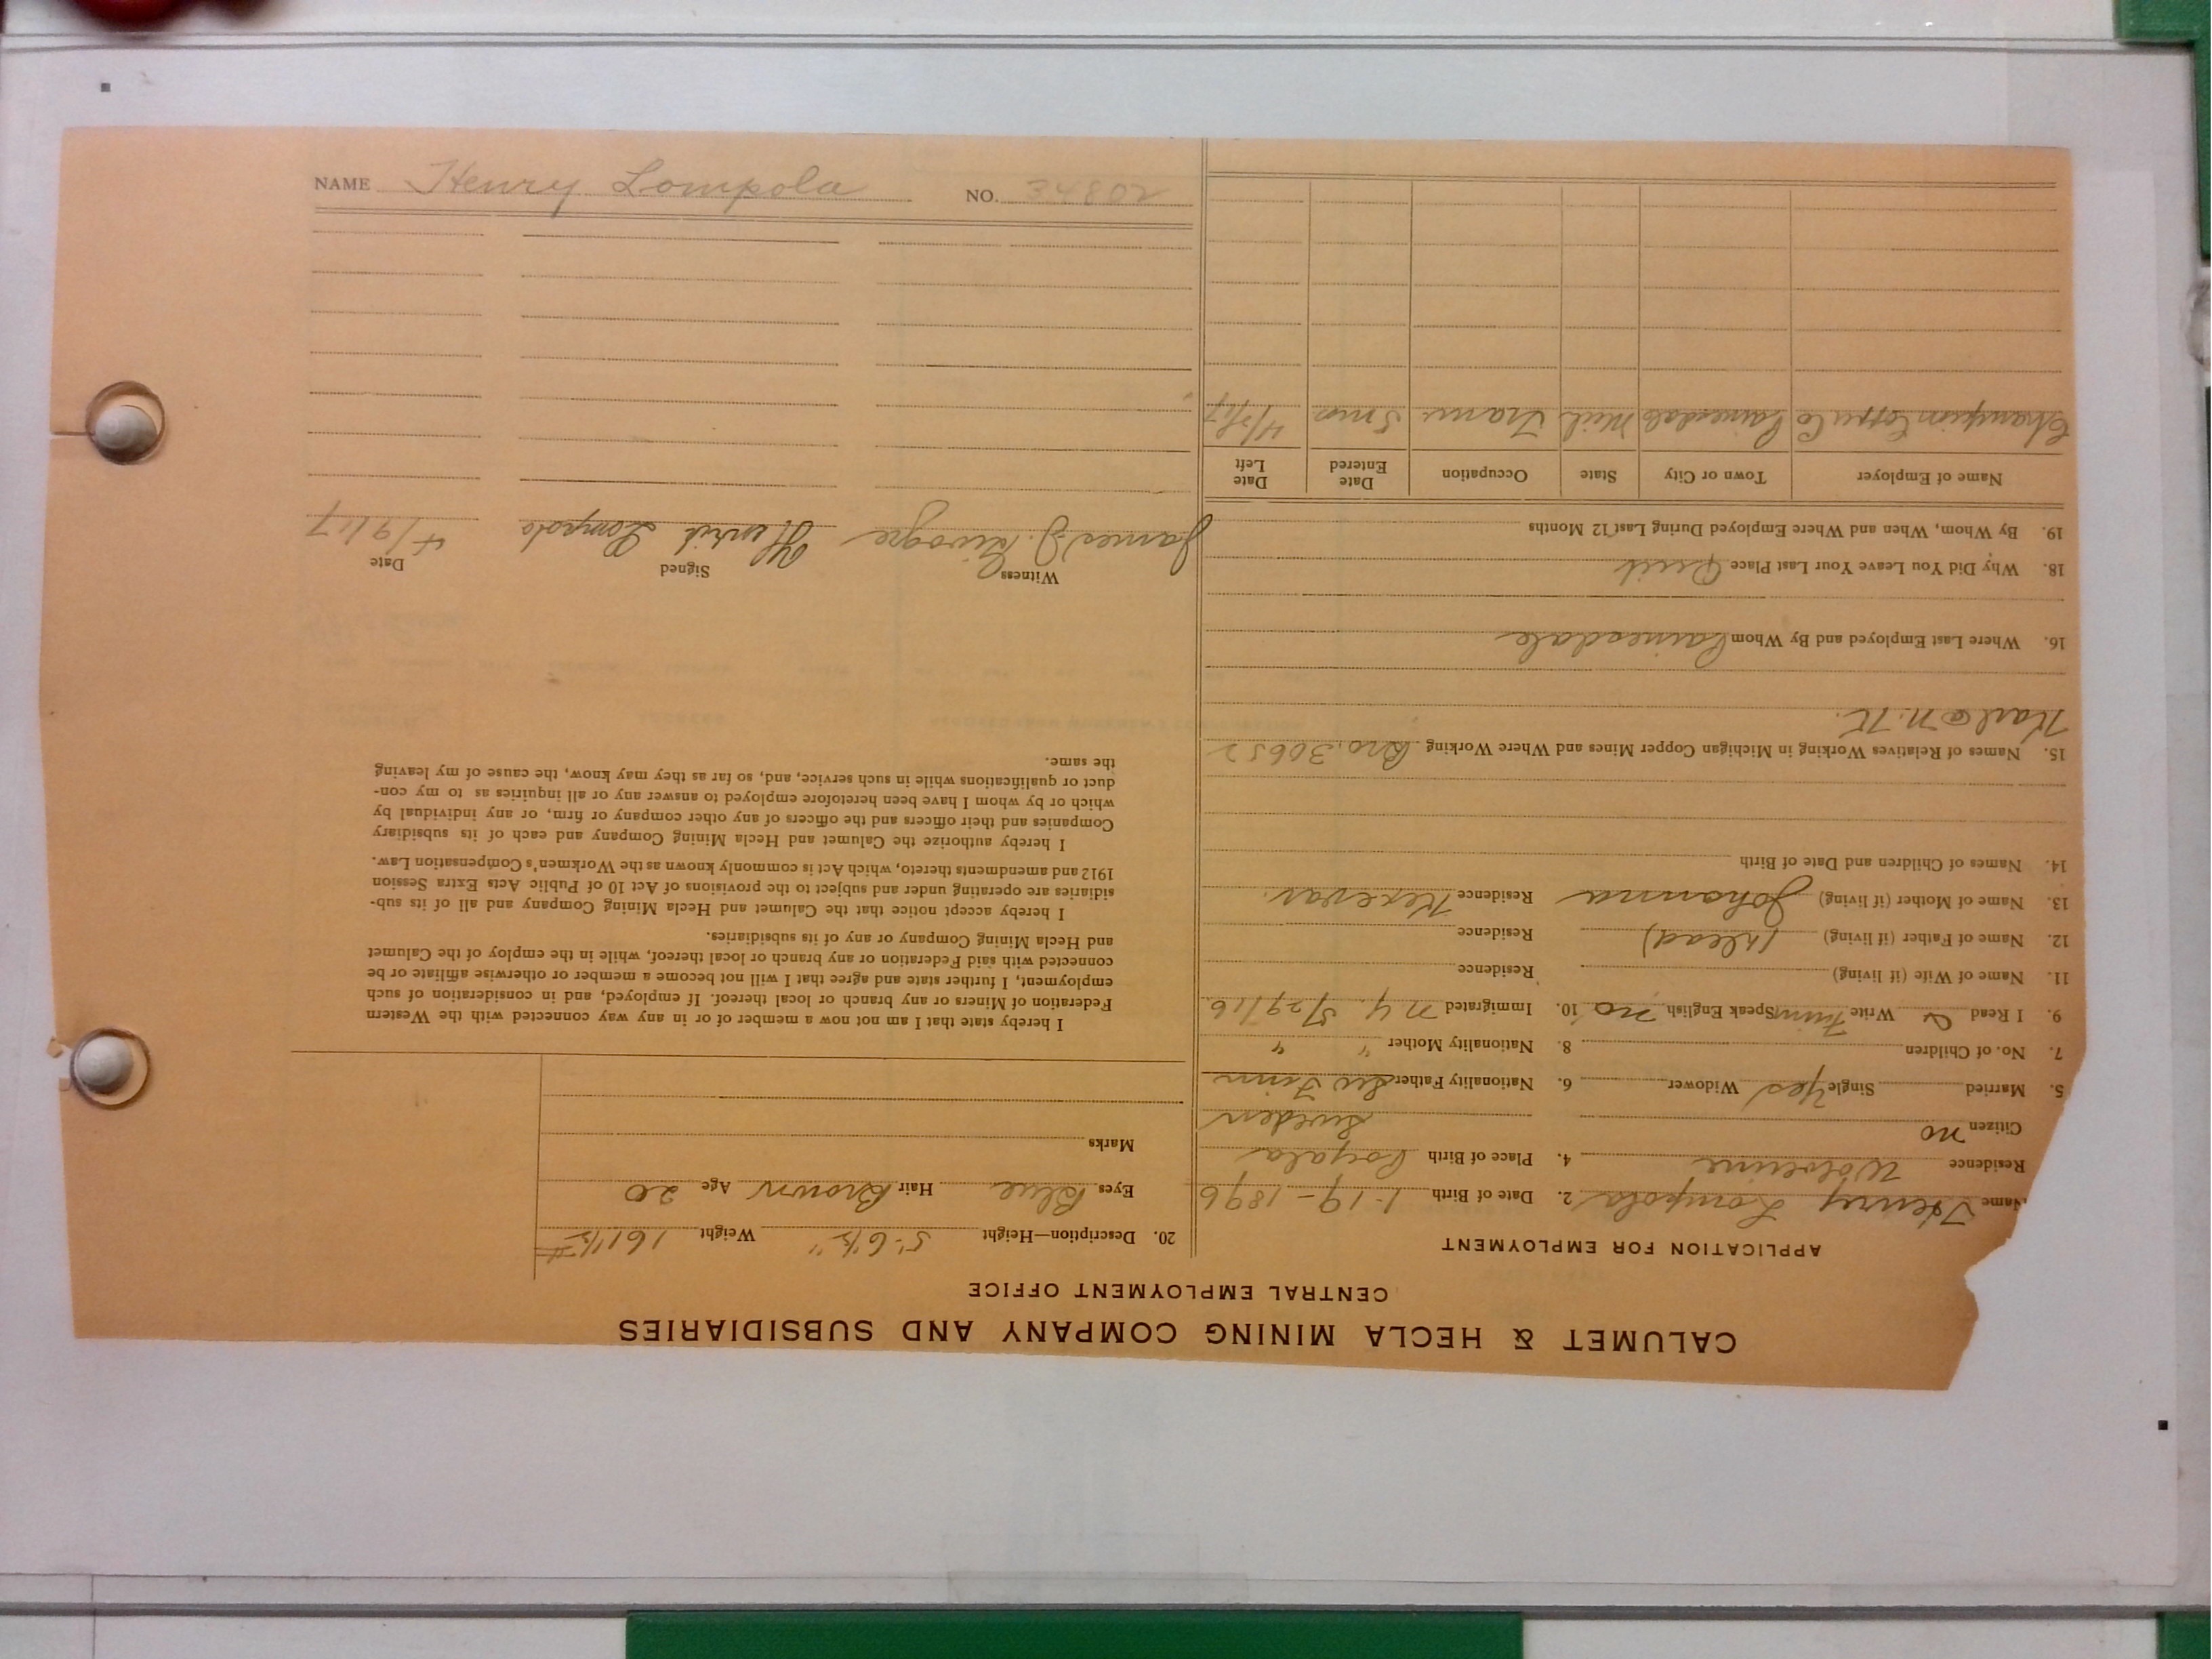 NAME Henry Lompola NO. 34802
CALUMET & HECLA MINING COMPANY AND SUBSIDIARIES
CENTRAL EMPLOYMENT OFFICE
APPLICATION FOR EMPLOYMENT
Name Henry Lompola 2. Date of Birth 1-19-1896
Residence Wolverine 4. Place of Birth
Citizen no Sweden
5. Married Single Yes Widower 6. Nationality Father Finn
7. No. of Children 8. Nationality Mother " "
9. I Read Write Finn Speak English no 10. Immigrated N.Y. 5/29/16
11. Name of Wife (if living) Residence
12. Name of Father (if living) (dead) Residence
13. Name of Mother (if living) Johanna Residence
14. Names of Children and Date of Birth
15. Names of Relatives Working in Michigan Copper Mines and Where Working Bro. 30652
16. Where Last Employed and By Whom Painesdale
18. Why Did You Leave Your Last Place Quit
19. By Whom, When and Where Employed During Last 12 Months
Name of Employer Town or City State Occupation Date Entered Date Left
Champion Copper Co Painesdale Mich Tram 5 mos 4/5/17
20. Description—Height 5'-6½" Weight 161½#
Eyes Blue Hair Brown Age 20
Marks
I hereby state that I am not now a member of or in any way connected with the Western
Federation of Miners or any branch or local thereof. If employed, and in consideration of such
employment, I further state and agree that I will not become a member or otherwise affiliate or be
connected with said Federation or any branch or local thereof, while in the employ of the Calumet
and Hecla Mining Company or any of its subsidiaries.
I hereby accept notice that the Calumet and Hecla Mining Company and all of its sub-
sidiaries are operating under and subject to the provisions of Act 10 of Public Acts Extra Session
1912 and amendments thereto, which Act is commonly known as the Workmen's Compensation Law.
I hereby authorize the Calumet and Hecla Mining Company and each of its subsidiary
Companies and their officers and the officers of any other company or firm, or any individual by
which or by whom I have been heretofore employed to answer any or all inquiries as to my con-
duct or qualifications while in such service, and, so far as they may know, the cause of my leaving
the same.
Witness Signed Date
James J. Henrik Lompolo 4/9/17